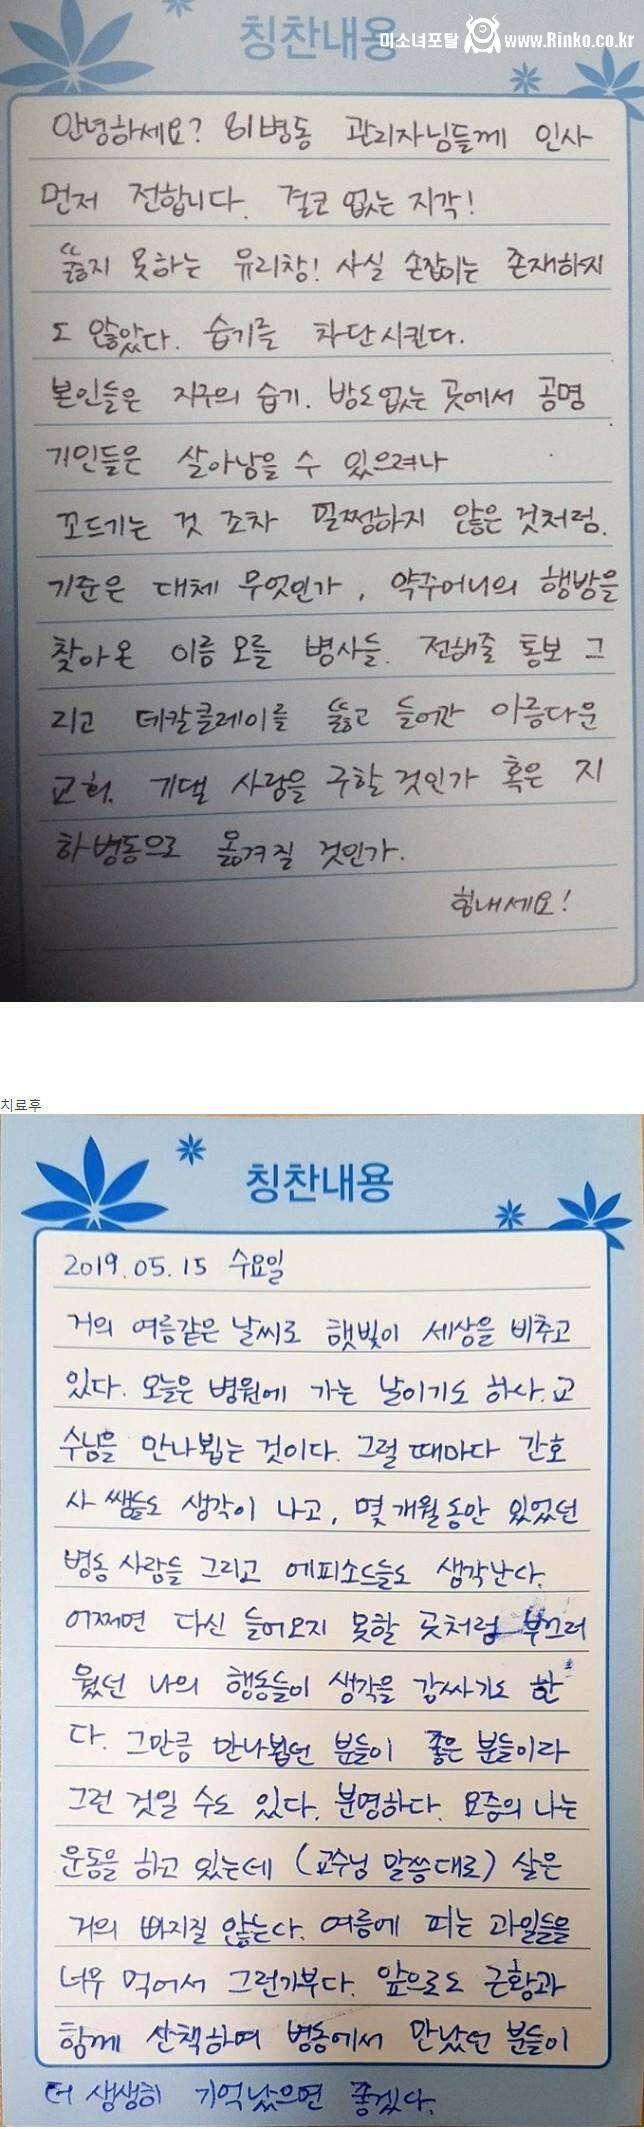 미소녀포탈 www.Rinko.co.kr
칭찬내용
안녕하세요? 81병동 관리자님들께 인사
먼저 전합니다. 결코 없는 지각!
"뚫지 못하는 유리창! 사실 손잡이는 존재하지
도 않았다. 습기를 차단시킨다.
본인들은 지구의 습기. 방도없는 곳에서 공명
기인들은 살아남을 수 있으려나
꼬드기는 것 조차 멀쩡하지 않은 것처럼.
기준은 대체 무엇인가, 약주머니의 행방을
찾아온 이름 모를 병사들. 전해줄 통보 그
리고 데칼클레이를 뚫고 들어간 아름다운
교회. 기댈 사람을 구할 것인가 혹은 지
하병동으로 옮겨질 것인가.
힘내세요!
치료후
칭찬내용
2019.05.15 수요일
거의 여름같은 날씨로 햇빛이 세상을 비추고
있다. 오늘은 병원에 가는 날이기도 하다. 교
수님을 만나뵙는 것이다. 그럴 때마다 간호
사 쌤들도 생각이 나고, 몇 개월 동안 있었던
병동 사람들 그리고 에피소드들도 생각난다.
어쩌면 다신 들어오지 못할 곳처럼 부끄러
웠던 나의 행동들이 생각을 감싸기도 한
다. 그만큼 만나뵙던 분들이 좋은 분들이라
그런 것일 수도 있다. 분명하다. 요즘의 나는
운동을 하고 있는데 (교수님 말씀대로) 살은
거의 빠지질 않는다. 여름에 피는 과일들을
너무 먹어서 그런가부다. 앞으로도 근황과
함께 산책하며 병동에서 만났던 분들이
더 생생히 기억났으면 좋겠다.